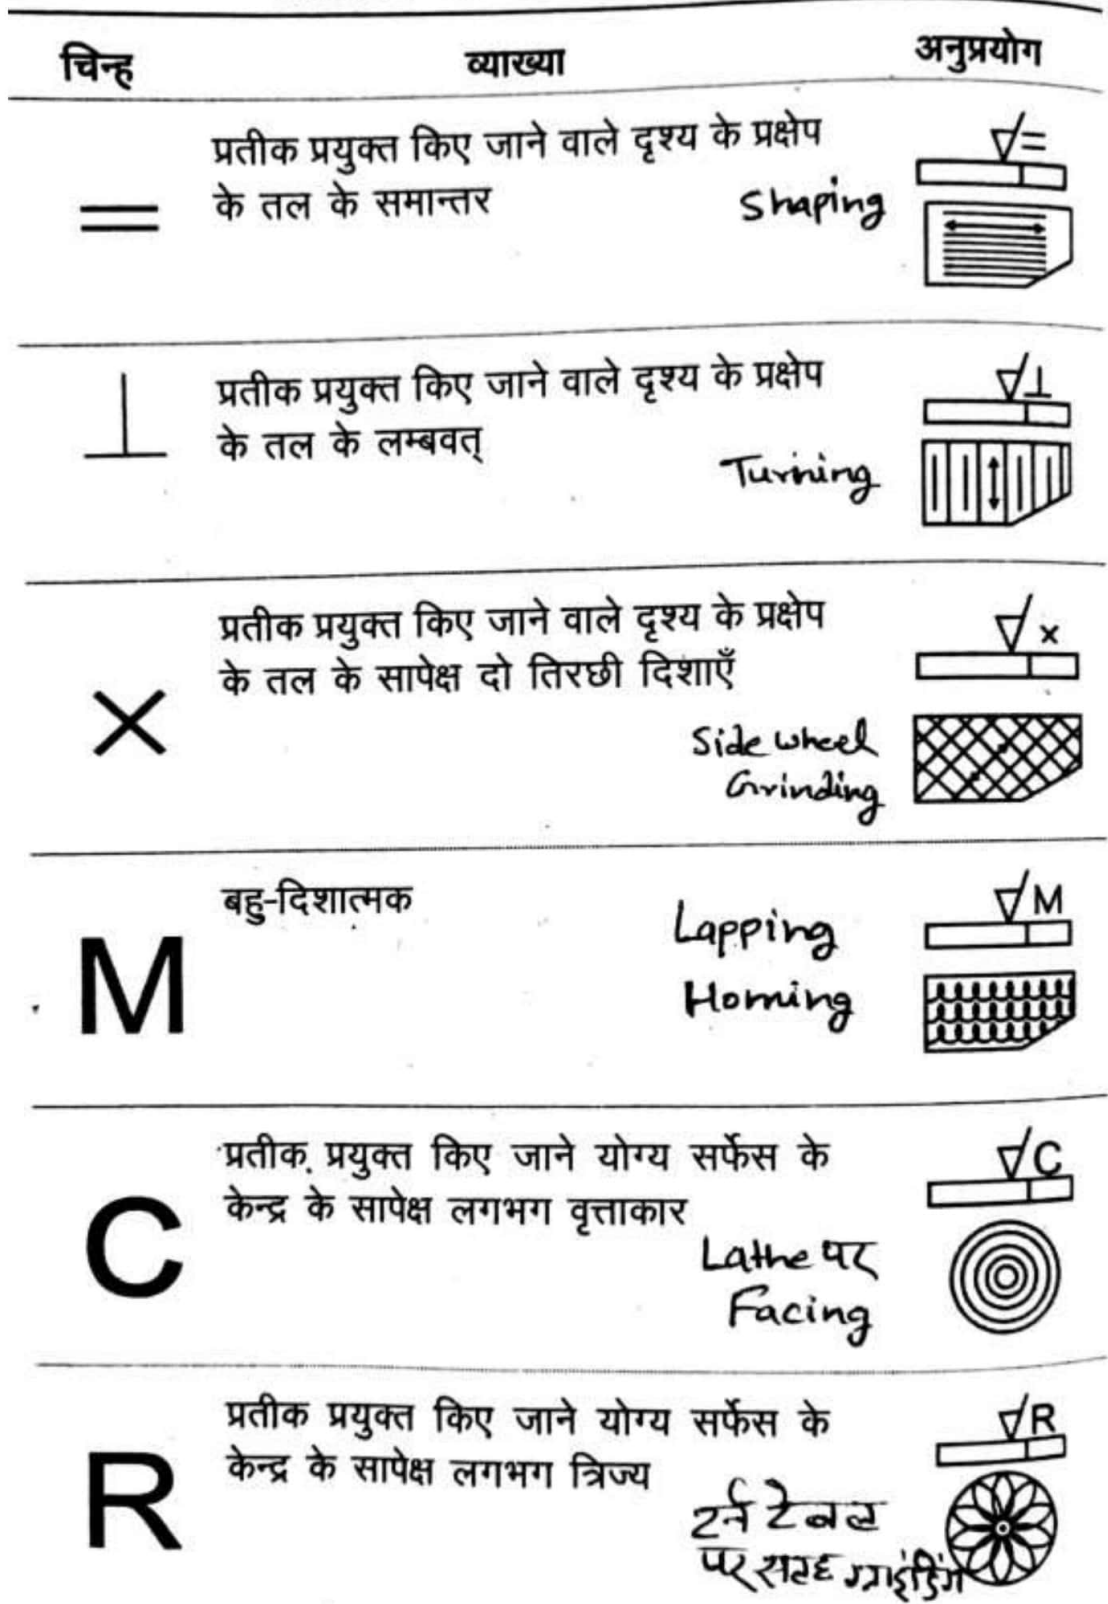 चिन्ह व्याख्या अनुप्रयोग
प्रतीक प्रयुक्त किए जाने वाले दृश्य के प्रक्षेप
के तल के समान्तर
=
Shaping
=
प्रतीक प्रयुक्त किए जाने वाले दृश्य के प्रक्षेप
के तल के लम्बवत्
⊥
Turining
⊥
प्रतीक प्रयुक्त किए जाने वाले दृश्य के प्रक्षेप
के तल के सापेक्ष दो तिरछी दिशाएँ
×
Side wheel
Grinding
×
बहु-दिशात्मक
M
Lapping
Homing
M
प्रतीक प्रयुक्त किए जाने योग्य सर्फेस के
केन्द्र के सापेक्ष लगभग वृत्ताकार
C
Lathe पर
Facing
C
प्रतीक प्रयुक्त किए जाने योग्य सर्फेस के
केन्द्र के सापेक्ष लगभग त्रिज्य
R
टर्न टेबल
पर सतह ग्राइंडिंग
R